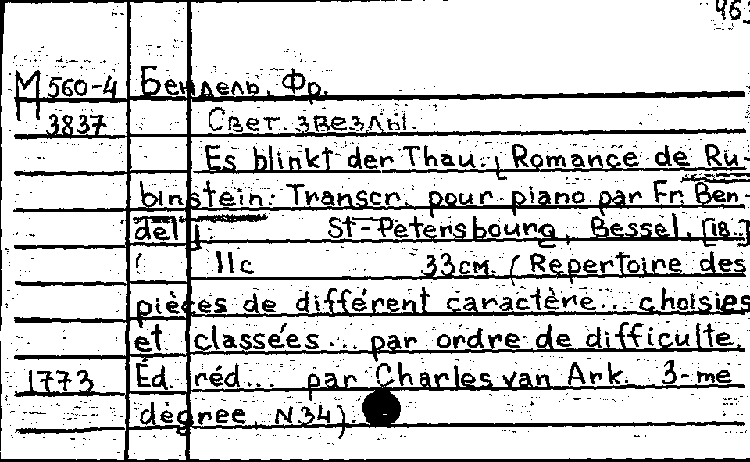 963
М 560-4 Бендель, Фр.
3837 Свет. звезды.
Es blinkt der Thau. [Romance de Ru-
binstein: Transcr. pour piano par Fr. Ben-
del]. St-Petersbourg, Bessel, [18..]
11с 33см. (Repertoire des
pièces de différent caractère... choisies
et classées... par ordre de difficulte.
1773 Éd. réd... par Charles van Ark. 3-me
degree, N34).